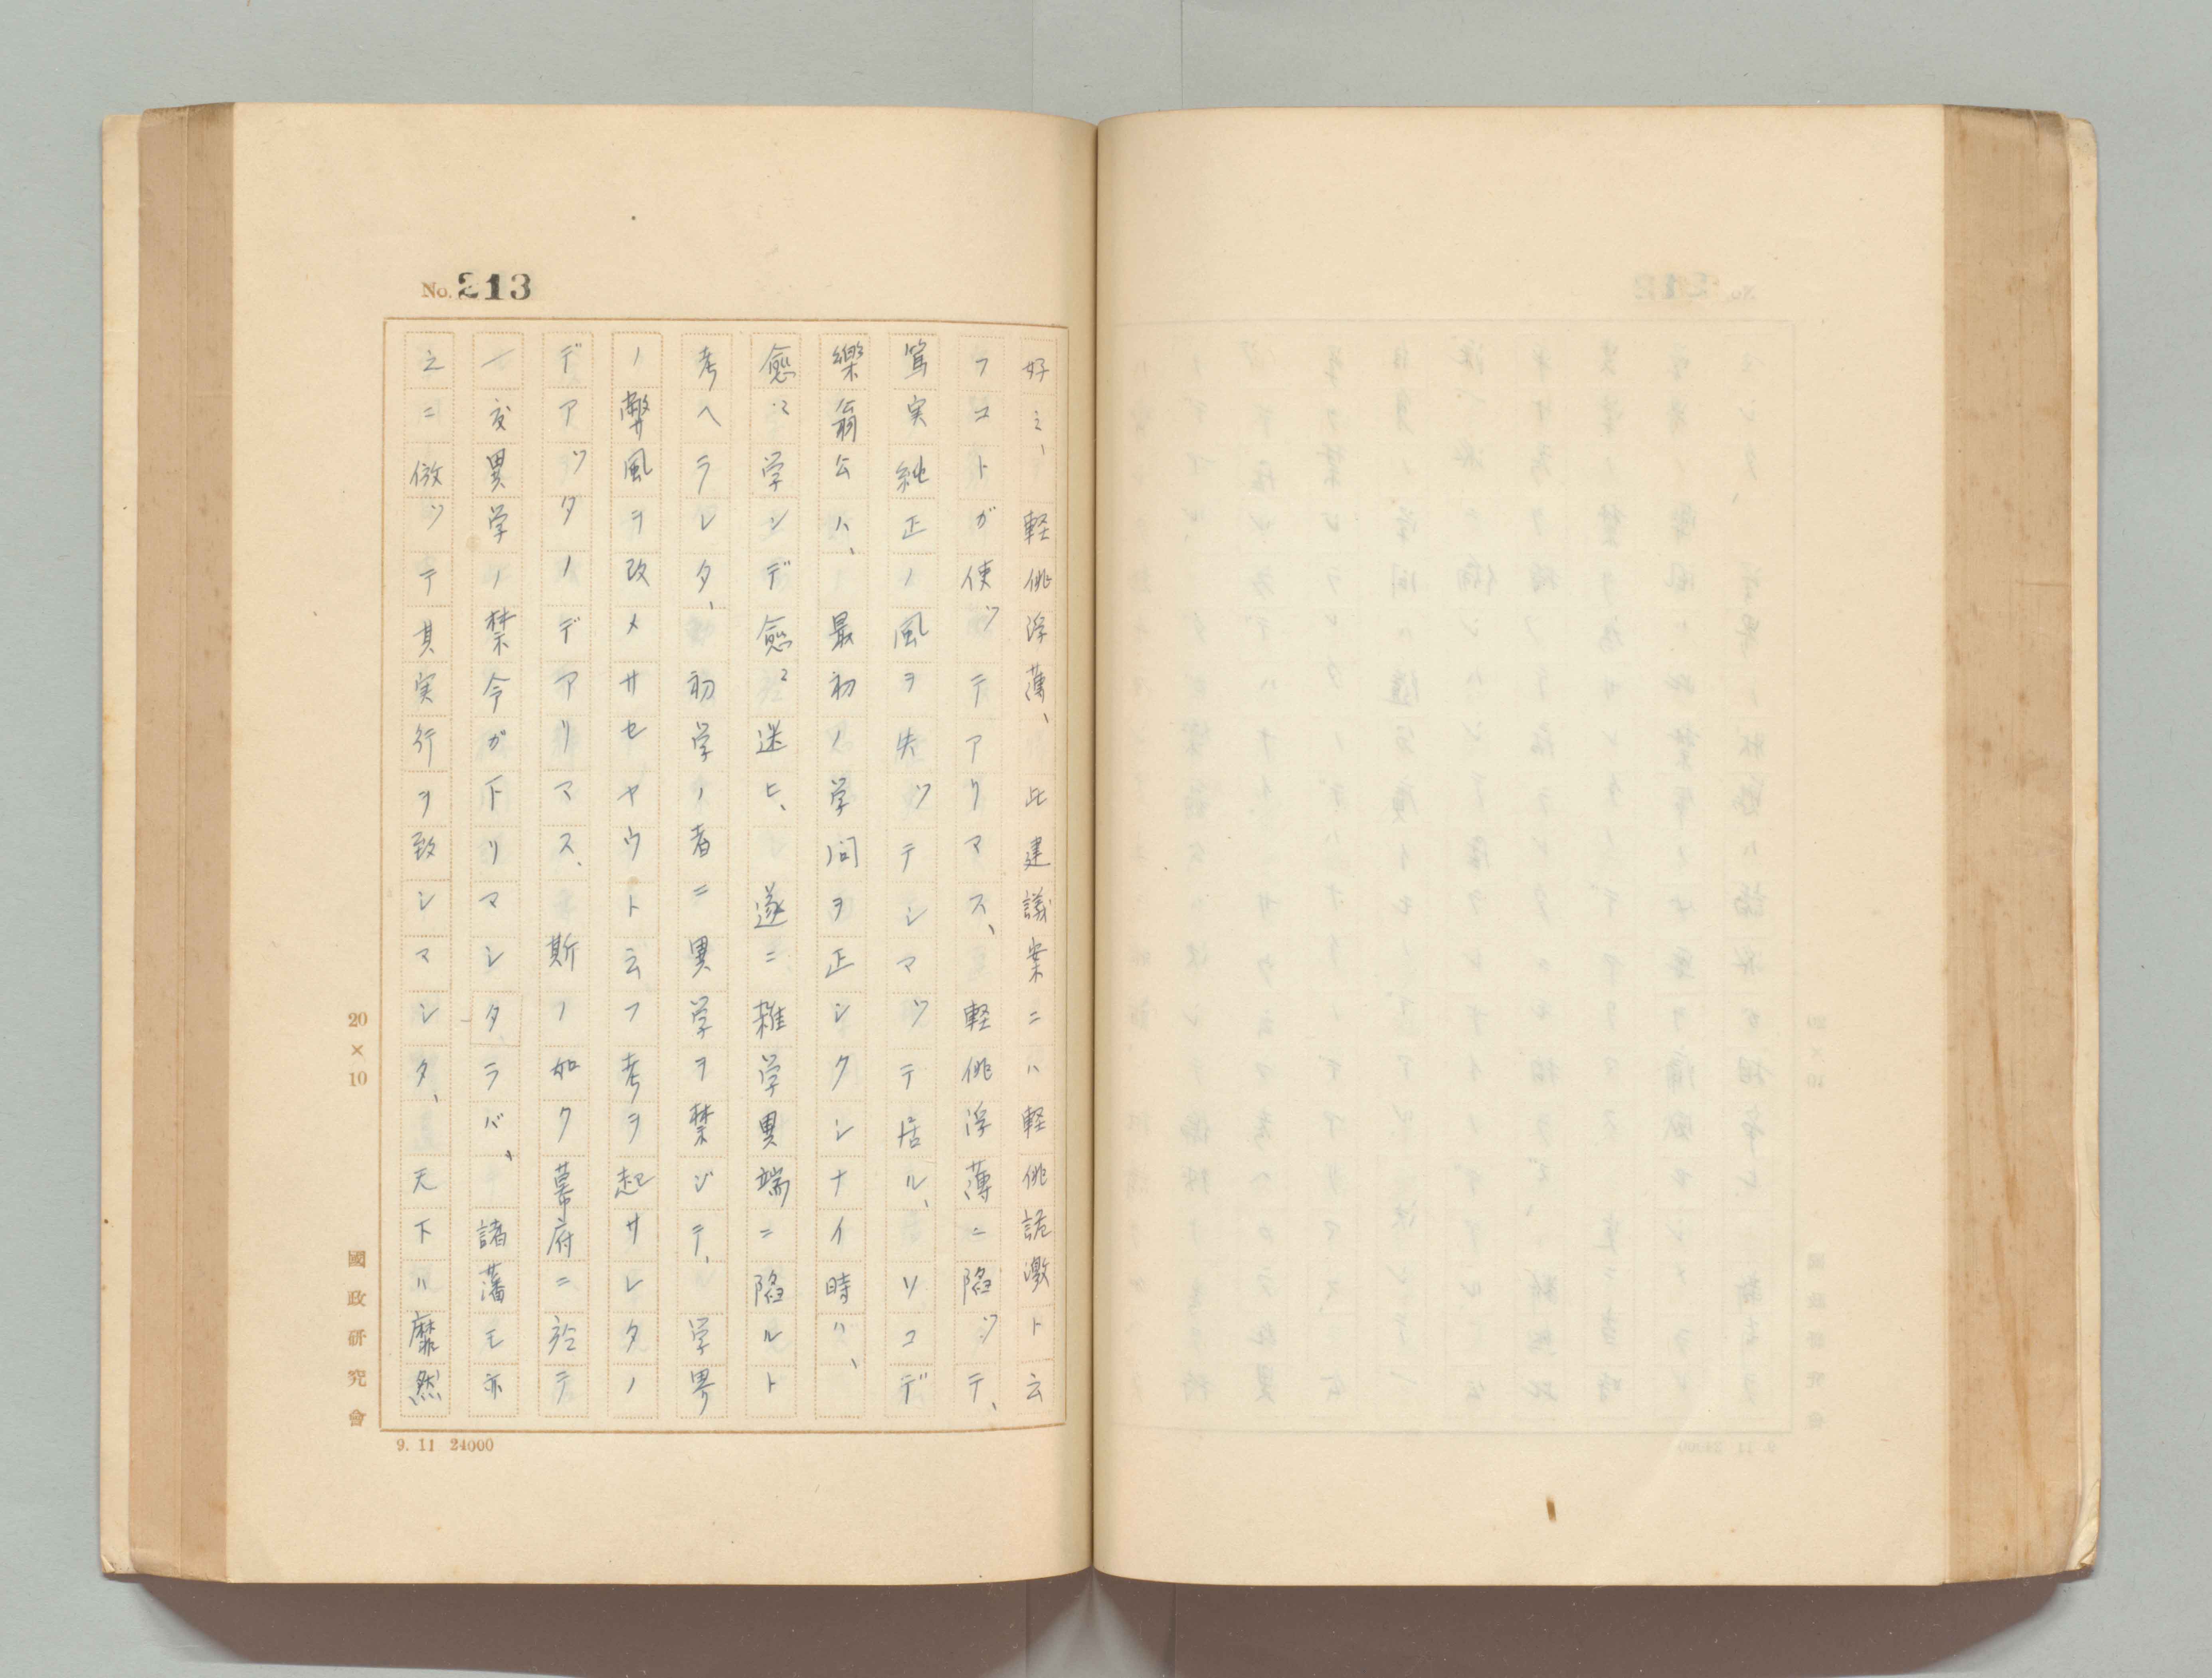 No. 213
好ミ、軽佻浮薄、此建議案ニハ軽佻詭激ト云
フコトガ使ツテアリマス、軽佻浮薄ニ陥ツテ、
篤実純正ノ風ヲ失ツテシマツテ居ル、ソコデ
樂翁公ハ、最初ノ学问ヲ正シクシナイ時ハ、
愈〻学ンデ愈〻迷ヒ、遂ニ雑学異端ニ陥ルト
考ヘラレタ、初学ノ者ニ異学ヲ禁ジテ、学界
ノ弊風ヲ改メサセヤウト云フ考ヲ起サレタノ
デアツタノデアリマス、斯ノ如ク幕府ニ於テ
一度異学ノ禁令ガ下リマシタラバ、諸藩モ亦
之ニ倣ツテ其実行ヲ致シマシタ、天下ハ靡然
20×10
國政研究會
9. 11 24000